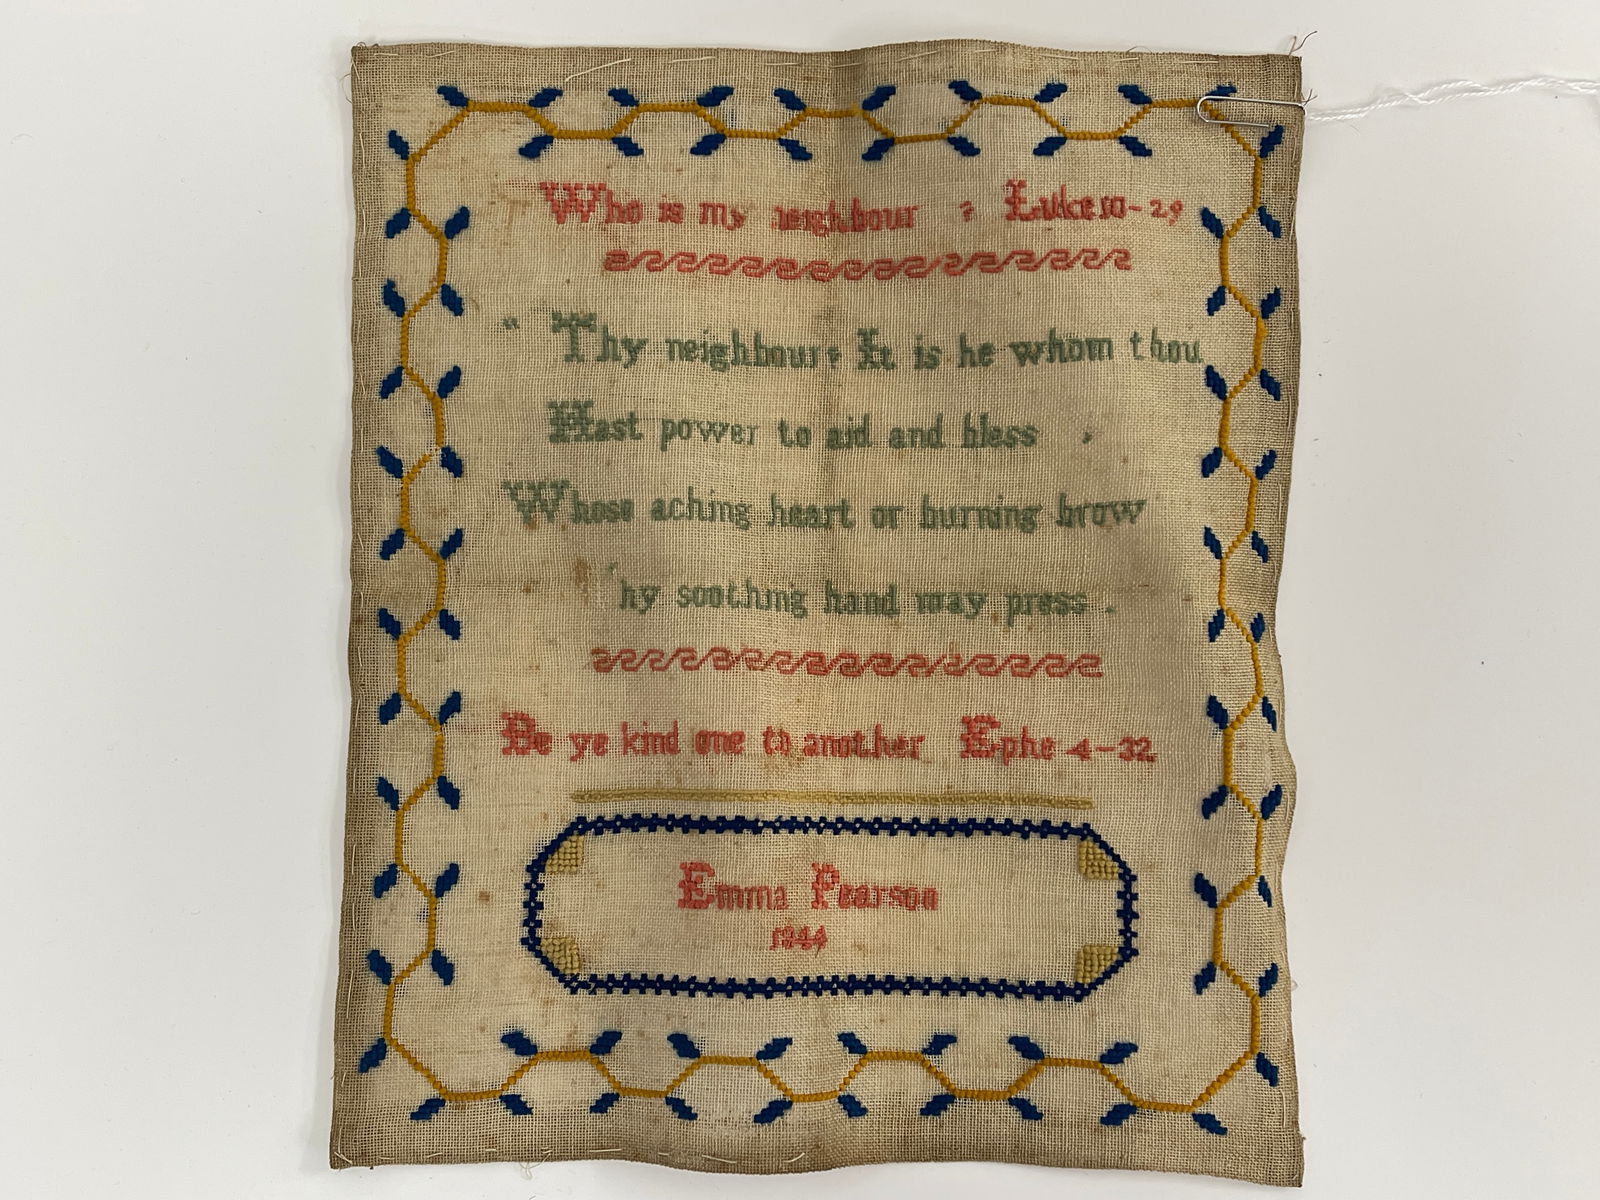 Who is my neighbour ? Luke 10-29
" Thy neighbour? It is he whom thou
Hast power to aid and bless ,
Whose aching heart or burning brow
hy soothing hand may press .
Be ye kind one to another Ephe 4-32
Emma Pearson
1844